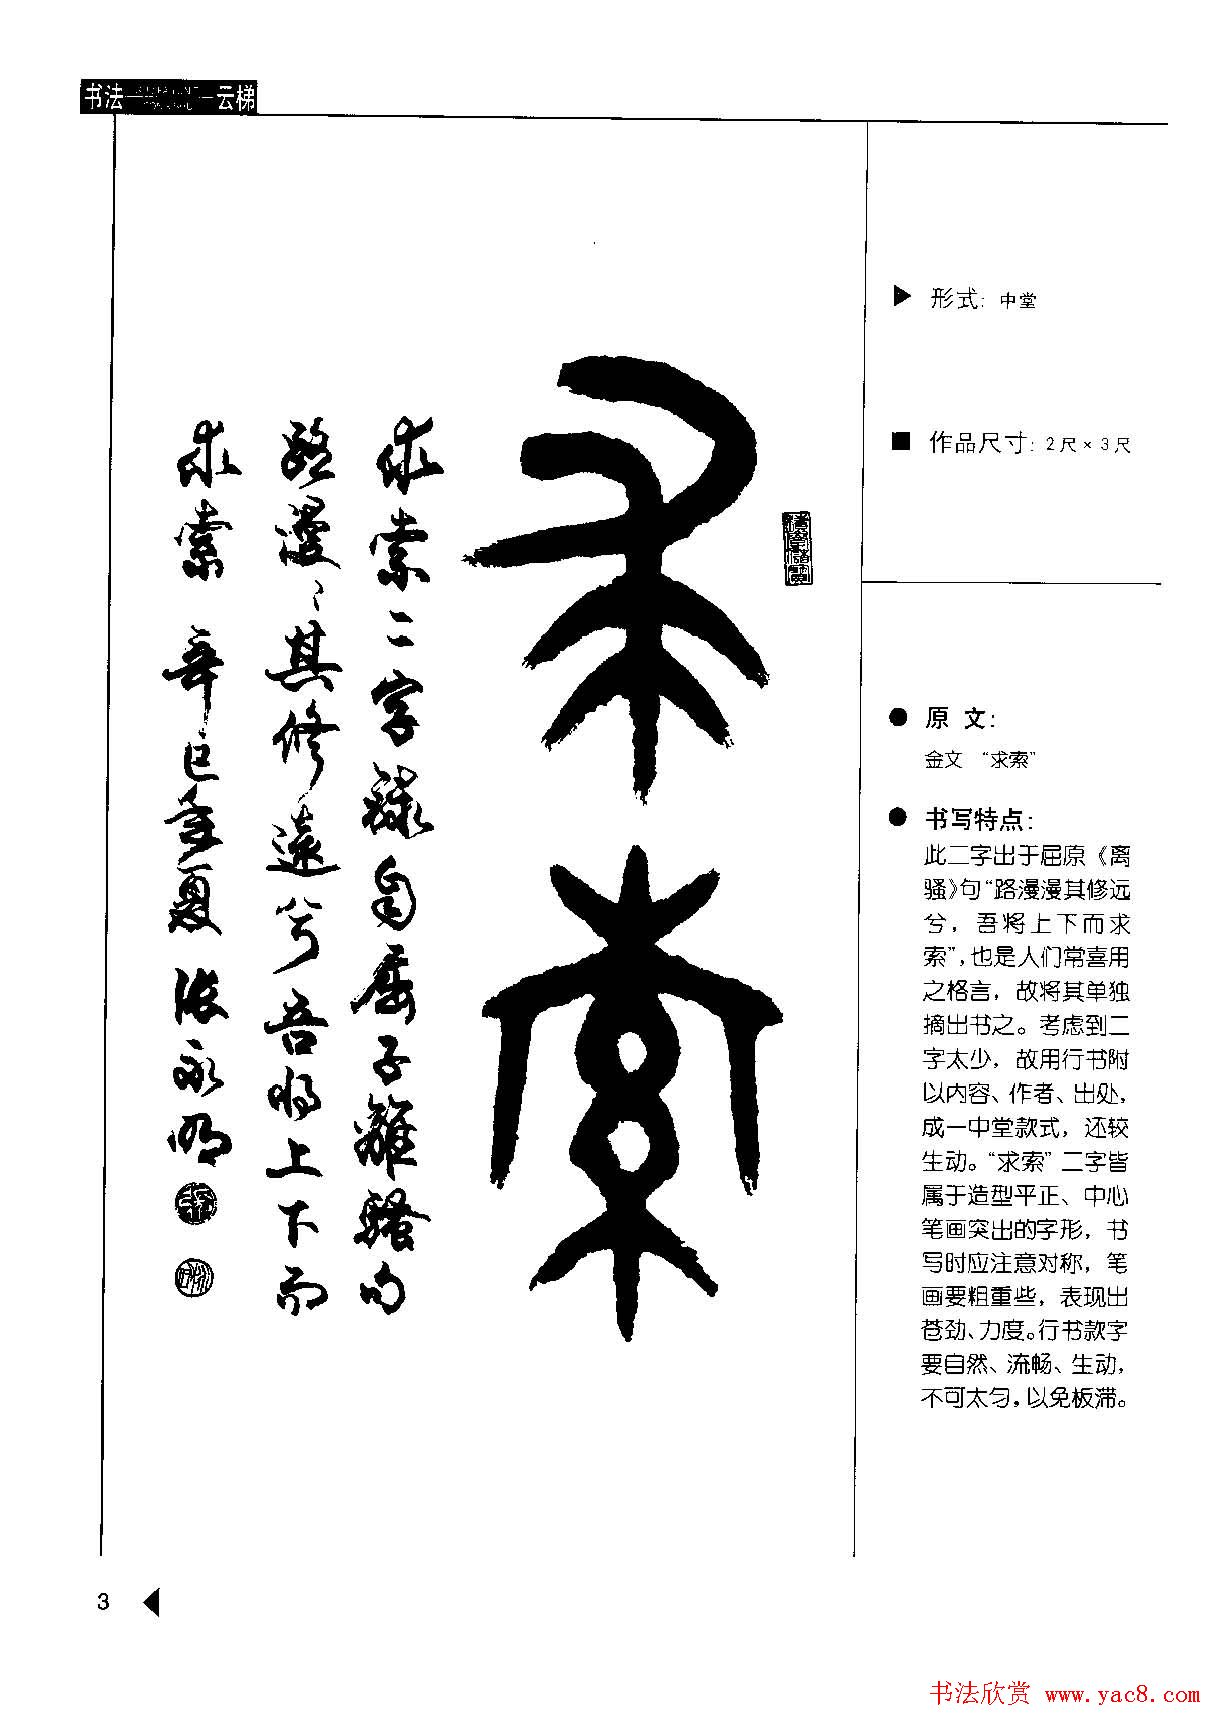 书法
云梯
求索
求索二字录自屈子離騷句
路漫〻其修遠兮吾将上下而
求索 辛巳年夏 张永明
形式: 中堂
作品尺寸: 2尺×3尺
原 文:
金文 “求索”
书写特点:
此二字出于屈原《离
骚》句“路漫漫其修远
兮，吾将上下而求
索”,也是人们常喜用
之格言，故将其单独
摘出书之。考虑到二
字太少，故用行书附
以内容、作者、出处,
成一中堂款式，还较
生动。“求索”二字皆
属于造型平正、中心
笔画突出的字形，书
写时应注意对称，笔
画要粗重些，表现出
苍劲、力度。行书款字
要自然、流畅、生动,
不可太匀，以免板滞。
3
书法欣赏 www.yac8.com